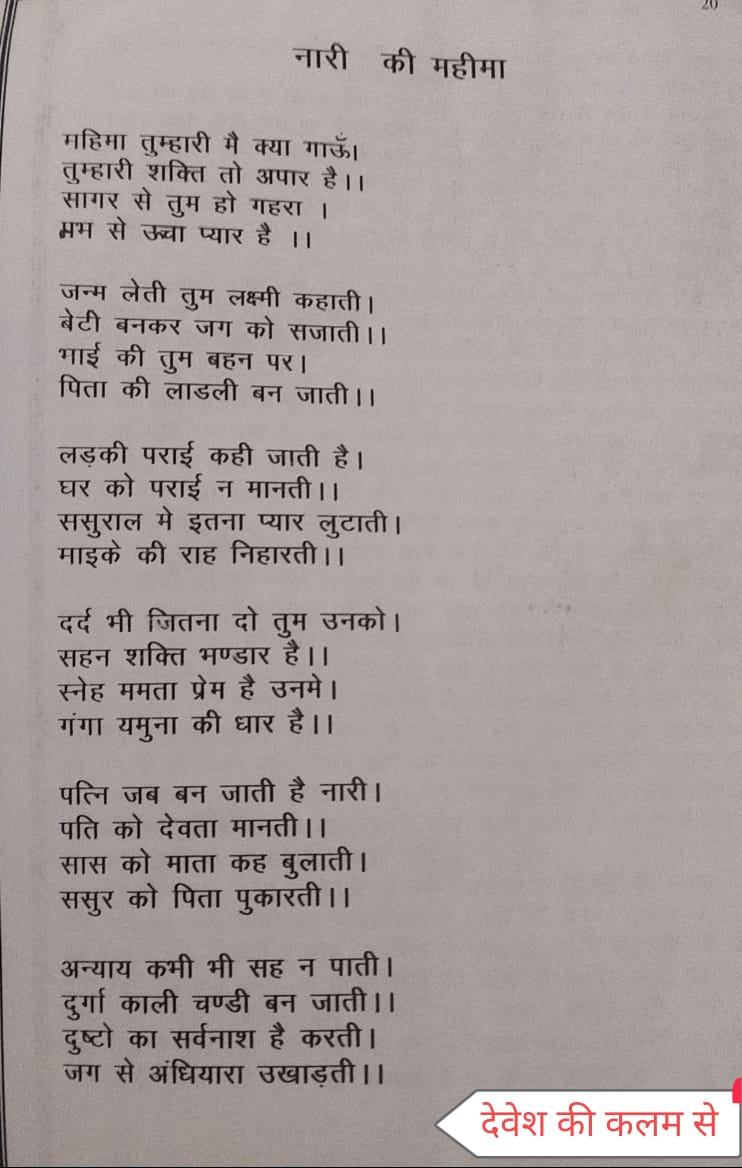 20
नारी की महीमा
महिमा तुम्हारी मै क्या गाऊँ।
तुम्हारी शक्ति तो अपार है।।
सागर से तुम हो गहरा ।
से ऊचा प्यार है ।।
जन्म लेती तुम लक्ष्मी कहाती।
बेटी बनकर जग को सजाती।।
भाई की तुम बहन पर।
पिता की लाडली बन जाती।।
लड़की पराई कही जाती है।
घर को पराई न मानती।।
ससुराल मे इतना प्यार लुटाती।
माइके की राह निहारती।।
दर्द भी जितना दो तुम उनको।
सहन शक्ति भण्डार है।।
स्नेह ममता प्रेम है उनमे।
गंगा यमुना की धार है।।
पत्नि जब बन जाती है नारी।
पति को देवता मानती।।
सास को माता कह बुलाती।
ससुर को पिता पुकारती।।
अन्याय कभी भी सह न पाती।
दुर्गा काली चण्डी बन जाती।।
दुष्टो का सर्वनाश है करती।
जग से अंधियारा उखाड़ती।।
देवेश की कलम से